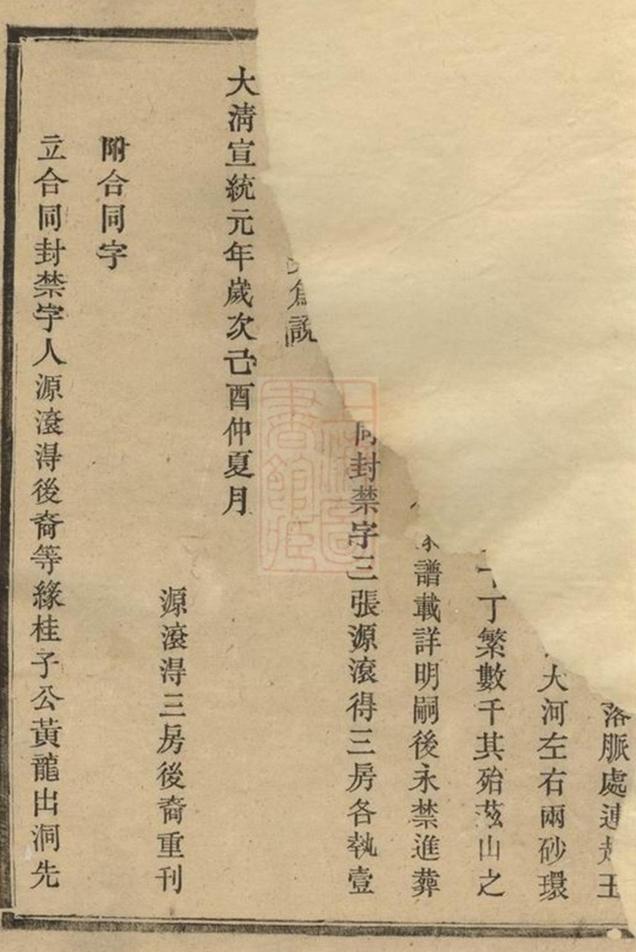 落脈處連
大河左右兩砂環
丁繁數千其殆茲山之
譜載詳明嗣後永禁進葬
同封禁字三張源滾得三房各執壹
為說
大清宣統元年歲次己酉仲夏月
源滾得三房後裔重刊
附合同字
立合同封禁字人源滾淂後裔等緣桂子公黃龍出洞先